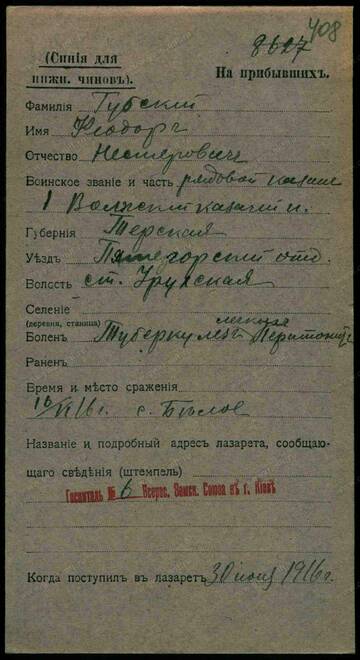 408
8627
(Синія для
нижн. чиновъ).
На прибывшихъ.
Фамилія Губский
Имя Феодоръ
Отчество Нестеровичъ
Воинское званіе и часть рядовой казакъ
1 Волжский казачий п.
Губернія Терская
Уѣздъ Пятегорский отд.
Волость ст. Урухская
Селеніе
(деревня, станица)
Боленъ Туберкулезъ легкихъ Перитонитъ
Раненъ
Время и мѣсто сраженія
16/VI 16 г. с. Бѣлое
Названіе и подробный адресъ лазарета, сообщаю-
щаго свѣдѣнія (штемпель)
Госпиталь № 6 Всерос. Земск. Союза въ г. Кіевѣ
Когда поступилъ въ лазаретъ 30 июня 1916 г.